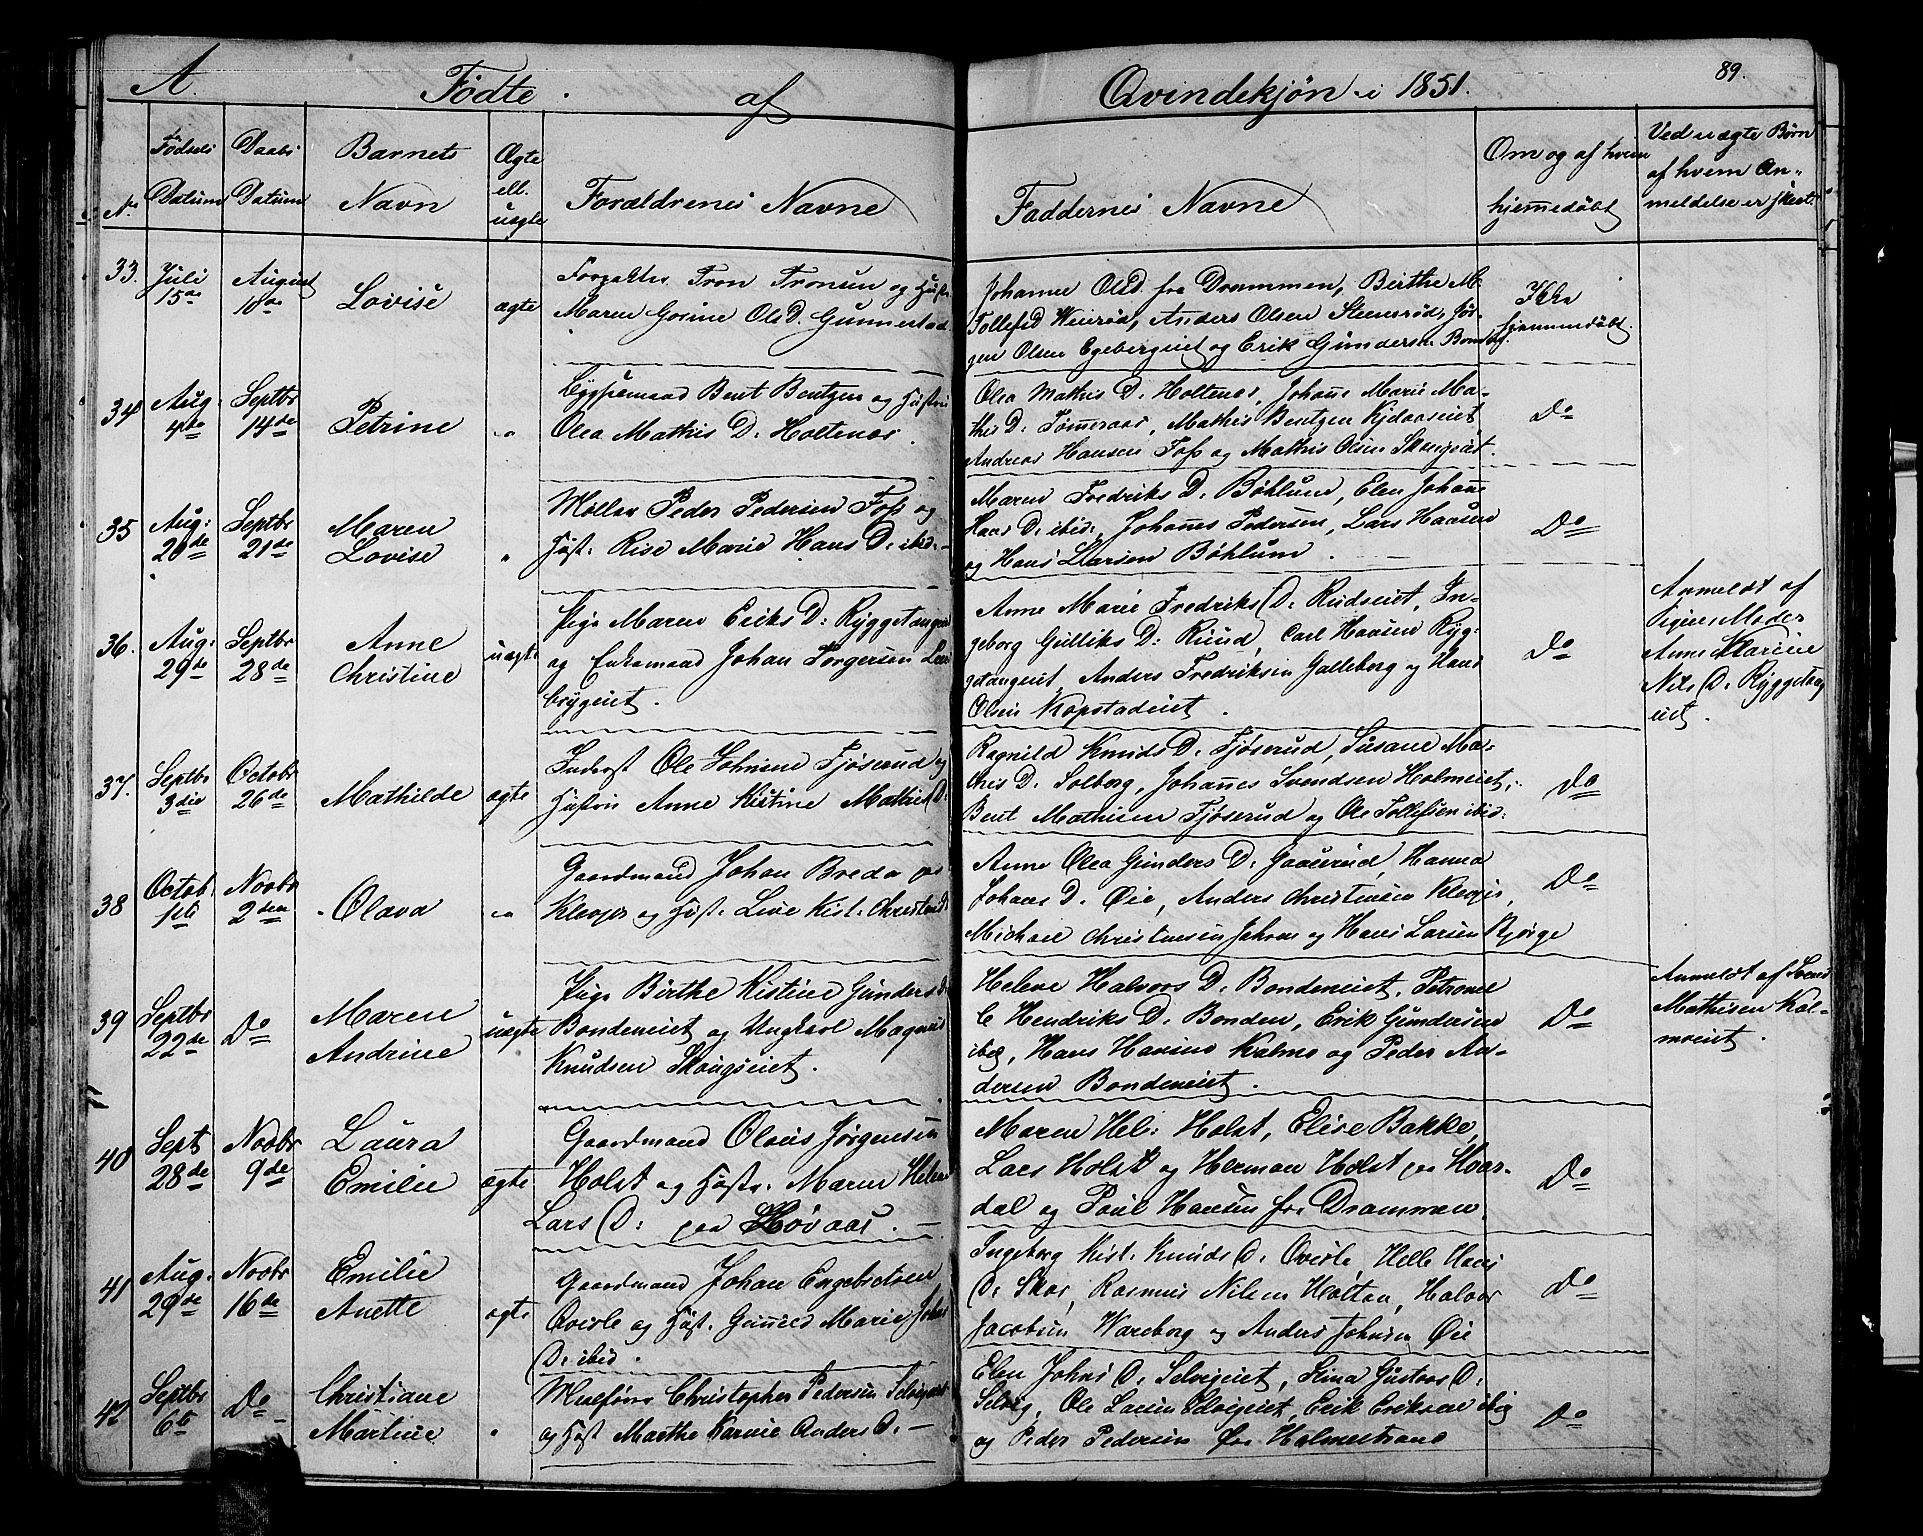 A. Fødte af Qvindekjøn i 1851. 89.
No. Fødsels Datum
Daabs Datum
Barnets Navn
Ægte ell. uægte
Forældrenes Navne
Faddernes Navne
Om og af hvem hjemmedøbt
Ved uægte Børn af hvem Anmeldelse er skeet.
33. Juli 15de
August 10de
Lovise
ægte
Tron Tronsen og Hustr.
Maren Gorine Ols D. Gunnestad
Johanne Olsd. fra Drammen, Berthe M.
Tollefsd Weierød, Anders Olsen Steensrød, Jør-
gen Olsen Egebergeiet og Erik Gundersen
Ikke hjemmedøbt.
34 Aug. 4de
Septbr 14de
Petrine
"
Bent Bentzen og Hustru
Olea Mathis D. Holtenes.
Olea Mathis D. Holtenes, Johane Marie Ma-
this D. Tømeraas, Mathis Bentzen
Andreas Hansen Foss og Mathis Olsen Skougeiet.
Do
35 Aug: 20de
Septbr 21de
Maren Lovise
"
Møller Peder Pedersen Foss og
Hust. Rise Marie Hans D. ibid. –
Maren Fredriks D. Bøhlum, Elen Johane
Hans D. ibid, Johanes Pedersen, Lars Hansen
og Hans Larsen Bøhlum.
Do
36. Aug: 29de
Septbr 28de
Anne Christine
uægte
Pige Maren Eriks D: Ryggetangen
og Enkemand Johan Torgersen Leer-
brygeiet.
Anne Marie Fredriks D: Rudseiet, In-
geborg Gulliks D: Ruud, Carl Hansen Ryg-
getangeiet Anders Fredriksen Galleberg og Hans
Olsen Kopstadeiet.
Do
Anmeldt af
Pigens Moder
Anne Marine
Nils D. Ryggetang
eiet.
37. Septbr 3die
Octobr 26de
Mathilde
ægte
Inderst Ole Johnsen Fjøserud og
Hustru Anne Kistine Mathis D.
Ragnild Knuds D. Fjøserud, Susane Ma-
this D. Solberg, Johannes Svendsen Holmeiet,
Bent Mathisen Fjøserud og Ole Tollefsen ibid:
Do
38 Octob. 1ste
Novbr 2den
Olava
"
Gaardmand Johan Breda paa
Klevjer og Hust. Live Kist. Christens D.
Anne Olea Gunders D. Gaaserud, Hanna
Johans D. Øie, Anders Christensen Klevjer,
Michael Christensen Johan og Hans Larsen Bjørge
Do
39 Septbr 22de
Do
Maren Andrine
uægte
Pige Birthe Kistine Gunders D.
Bondeneiet og Ungkarl Magnus
Knudsen Skougseiet.
Helene Halvors D. Bondeneiet, Petronel
le Hendriks D. Bonden, Erik Gundersen
ibid, Hans Hansen Kalmo og Peder An-
dersen Bondeneiet.
Do
Anmeldt af Svend
Mathisen Kol-
moeiet.
40 Sept 28de
Novbr 9de
Laura Emilie
ægte
Gaardmand Olaus Jørgensen
Holst og Hustr. Maren Helene
Lars D: paa Høvaas. –
Maren Hel: Holst, Elise Bakke,
Lars Holst og Herman Holst paa Hvar-
dal og Paul Hansen fra Drammen.
Do
41 Aug. 29de
Novbr 16de
Emilie Anette
ægte
Gaardmand Johan Engebretsen
Qvisle og Hust. Gunild Marie Johns
D. ibid.
Ingeborg Kist. Knuds D. Qvisle, Helle Hans
D. Skor, Rasmus Nilsen Holtan, Halvor
Jacobsen Wareborg og Anders Johnsen Øie
Do
42 Septbr 6te
Do
Christiane Martine
"
Christopher Pedersen Selvigeiet
og Hust Marthe Karine Anders D. –
Elen Johns D. Selvigeiet, Stina Gustavs D.
Selvig, Ole Larsen Selvigeiet, Erik Eriksen ibid
og Peder Pedersen fra Holmestrand
Do